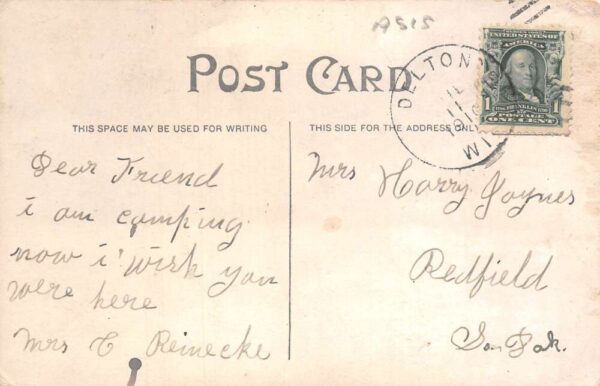 ASIS
POST CARD
UNITED STATES OF
AMERICA
1 FRANKLIN 1
POSTAGE
ONE CENT
DELTON
THIS SPACE MAY BE USED FOR WRITING
THIS SIDE FOR THE ADDRESS ONLY
Dear Friend
i am camping
now i wish you
were here
Mrs C Reinecke
Mrs Harry Joynes
Redfield
So. Dak.